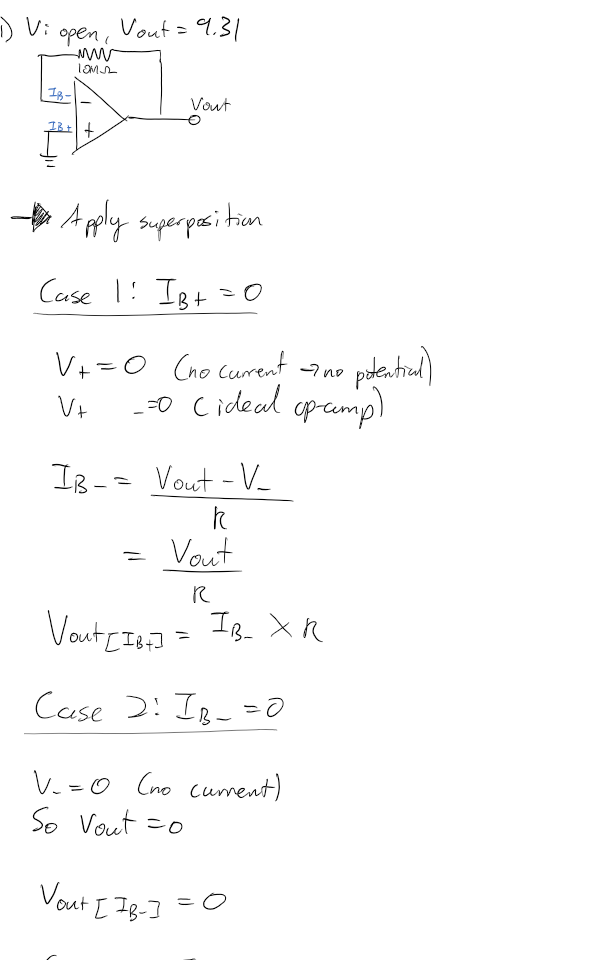 1) Vi open, Vout = 9.31
10MΩ
IB-
-
Vout
IB+
+
→ Apply superposition
Case 1: IB+ = 0
V+ = 0 (no current → no potential)
V+ -=0 (ideal op-amp)
IB- = Vout - V-
R
= Vout
R
Vout[IB+] = IB- × R
Case 2: IB- = 0
V- = 0 (no current)
So Vout = 0
Vout[IB-] = 0